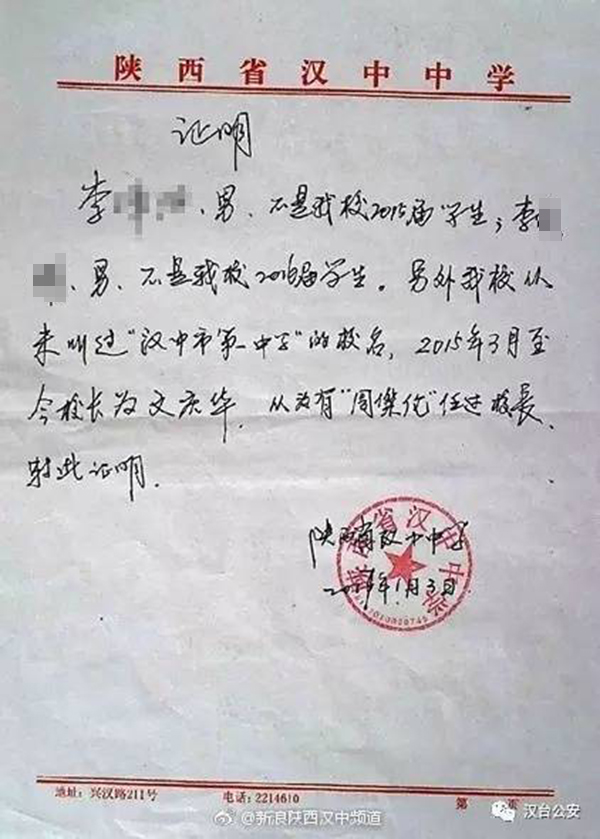 陕西省汉中中学
证明
李 、男、不是我校2015届学生；李
、男、不是我校2016届学生。另外我校从
未叫过“汉中市第一中学”的校名，2015年3月至
今校长为文庆华，从未有“周杰伦”任过校长、
特此证明.
陕西省汉中中学
年1月3日
陕西省汉中中学
地址：兴汉路211号 电话：2214610 第 页
@新浪陕西汉中频道
汉台公安